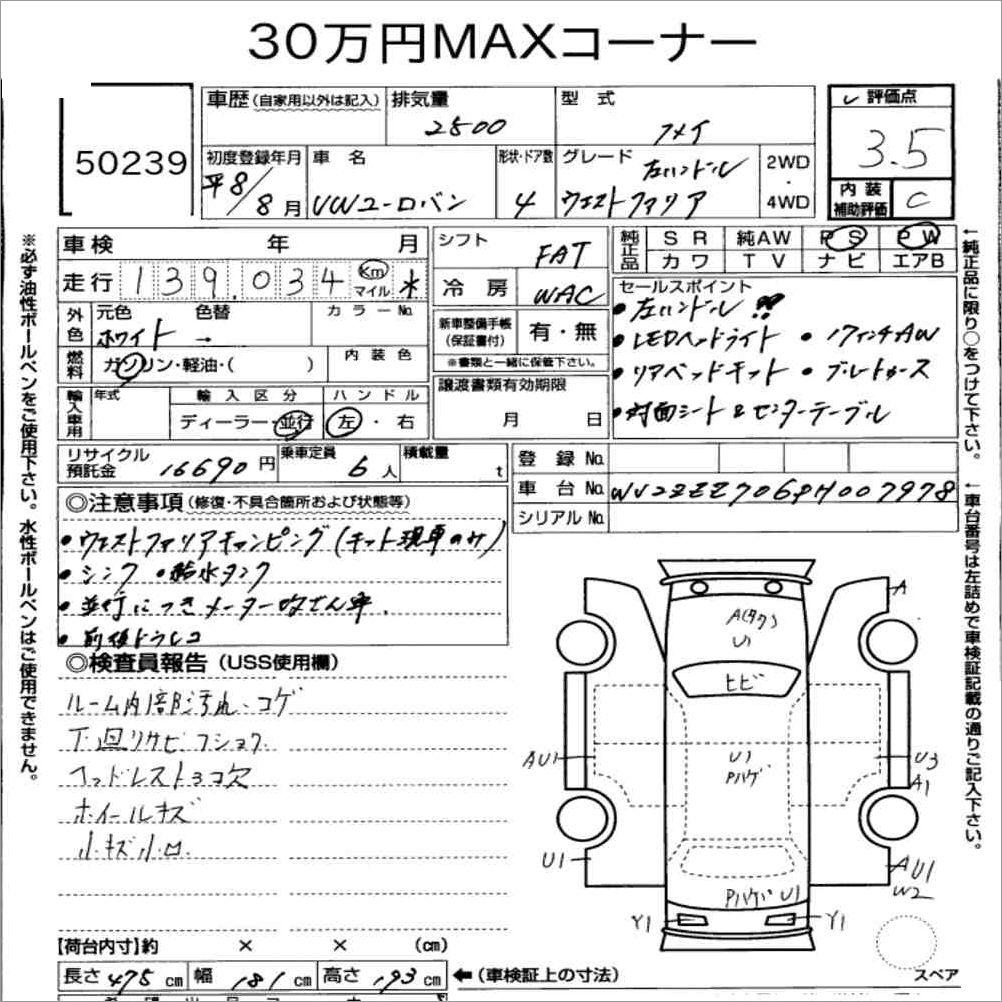 30万円MAXコーナー
50239
車歴(自家用以外は記入) 排気量 2500
型式 フメイ
評価点 3.5
初度登録年月 平8/8月
車名 VWユーロバン
形状・ドア数 4
グレード 左ハンドル
ウェストファリア
2WD・4WD
内装補助評価 C
※必ず油性ボールペンをご使用下さい。水性ボールペンはご使用できません。
車検 年 月
走行 139,034 Km マイル
外色 元色 ホワイト 色替 → カラーNo.
燃料 ガソリン・軽油・( ) 内装色
輸入車用 年式 輸入区分 ディーラー・並行 ハンドル 左・右
シフト FAT
冷房 WAC
新車整備手帳(保証書付) 有・無
※書類と一緒に保管下さい。
譲渡書類有効期限
月 日
純正品 SR 純AW PS PW
カワ TV ナビ エアB
セールスポイント
・左ハンドル!!
・LEDヘッドライト ・17インチAW
・リアベッドキット ・ブレートカース
・対面シート&センターテーブル
←純正品に限り○をつけて下さい。
リサイクル預託金 16690円 乗車定員 6人 積載量 t
登録No.
車台No. WV2ZZZ70ZPH007978
シリアルNo.
←車台番号は左詰めで車検証記載の通りご記入下さい。
◎注意事項(修復・不具合箇所および状態等)
・ウェストファリアキャンピング(キット現車のみ)
・シンク ・給水タンク
・並行につきメーター改ざん車.
・前後ドラレコ
◎検査員報告(USS使用欄)
ルーム内部汚れ・コゲ
下廻りサビフショク
ヘッドレスト3コ欠
ホイールキズ
小キズ小凹
A(タク)
U1
ヒビ
U1
Pハゲ
Pハゲ U1
Y1 Y1
A
AU1
U3
A1
U1
AU1
W2
スペア
【荷台内寸】約 × × (cm)
長さ 475cm 幅 181cm 高さ 193cm ←(車検証上の寸法)